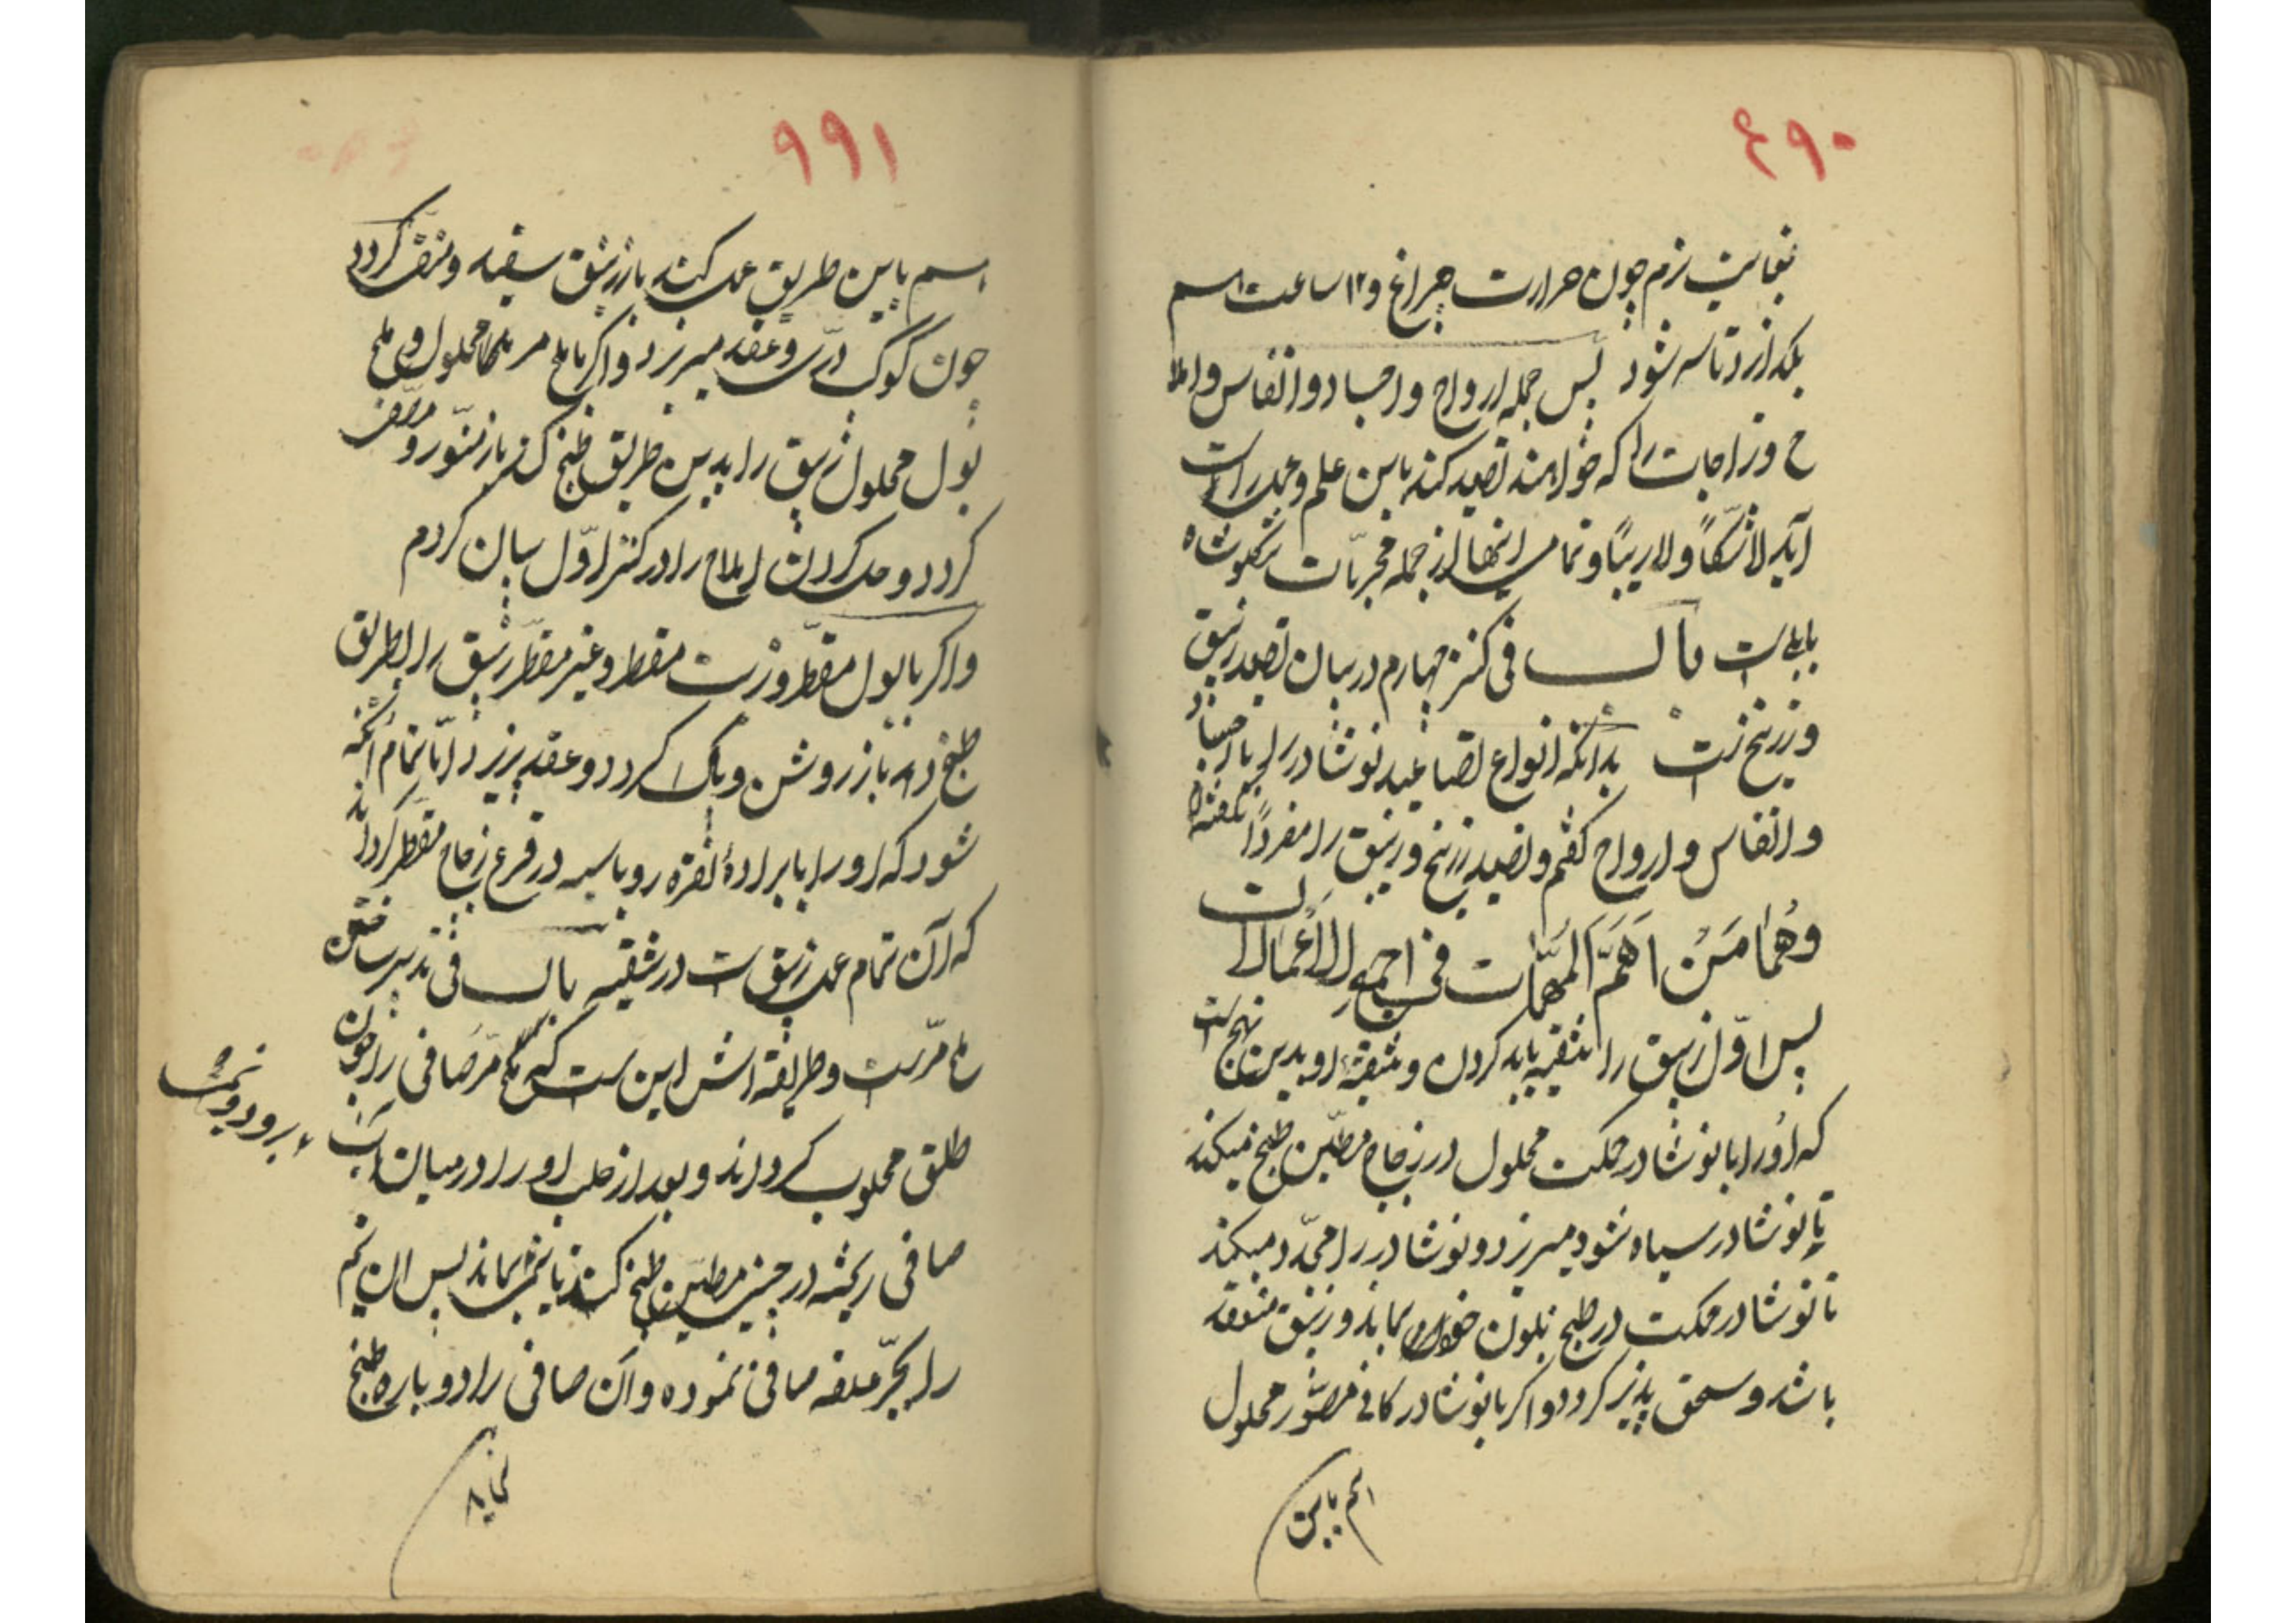 ۶۹۰
بغایت نرم چون حرارت چراغ و ۱۲ ساعت هم
بگذارد تا سرد شود پس جمله ارواح و اجساد و انفاس و املا
ح و زاجات را که خواهند تصعید کنند باین علم و عمل راست
آید لاشکّاً و لاریباً و تمامی اینها از جمله مجرّبات
باب فی کنز چهارم در بیان تصعید زیبق
و زرنیخ است بدانکه انواع تصاعید نوشادر را با اجساد
و انفاس و ارواح گفتم و تصعید زرنیخ و زیبق را مفرداً نگفته‌ام
وَهُما مَنْ اَهَمّ المهمّات فی اجمع الاَعْمالات
پس اوّل زیبق را تنقیه باید کردن و تنقیهٔ او بدین نهج است
که اورا با نوشادر حکمت محلول در زجاج مطیّن طبخ میکنند
تا نوشادر سیاه شود میریزد و نوشادر را مجدّد میکند
تا نوشادر حکمت در طبخ بلون خود بماند و زیبق منعقد
باشد و سحق پذیر گردد و اگر با نوشادر کانی مصوّر محلول
هم باین
۹۹۱
هم باین طریق عمل کنند باز زیبق سفید و گردد
چون گوگ و عقد میپزیرد و اگر با ملح مر محلول و ملح
بول محلول زیبق را بدین طریق طبخ کند باز منوّر و
گردد و حل کردن املاح را در کنز اوّل بیان کردم
و اگر با بول مقطر و زیت مقطر و غیر مقطّر زیبق را بطریق
طبخ دهد باز روشن و پاک گردد و عقد پزیرد امّا تمام آنگه
شود که او را با برادهٔ نقره روباسیه در قرع زجاج مقطر گرداند
که آن تمام عمل زیبق است در تنقیه باب فی تدبیر ساختن
ملح مرّ است و طریقه‌اش این است که ملح مرّ صافی را چون
طلق محلوب گرداند و بعد از حلب او را در میان آب
صافی ریخته در چینی مطیّن طبخ کند تا نیمی بماند پس ان نیم
برود و نیمی
را بجرّ علقه صافی نموده و آن صافی را دوباره طبخ
نماید